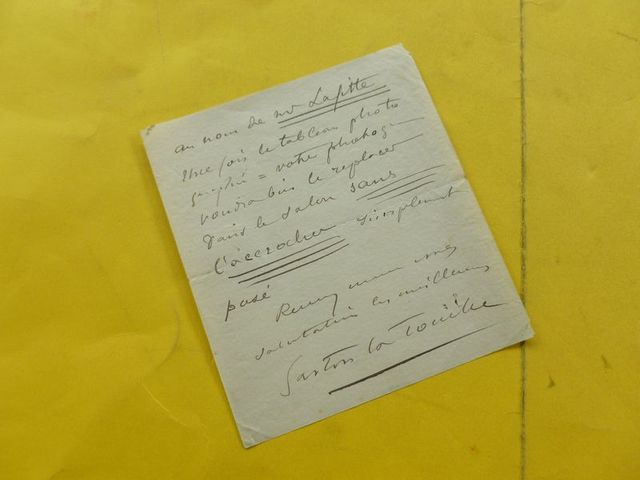 au nom de Mr Lapitte
Une fois le tableau photo
graphié = votre photog
voudra bien le replacer
dans le salon sans
l'accrocher simplement
posé
Recevez mes
salutations les meilleures
Gaston La Touche